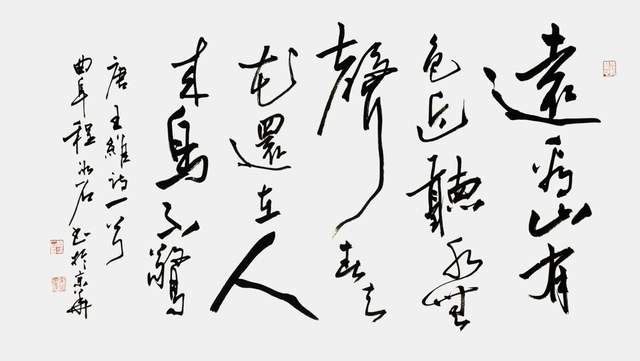 遠看山有
色近聽水無
聲春去
花還在人
来鳥不驚
唐王維诗一首
曲阜程石书於京華